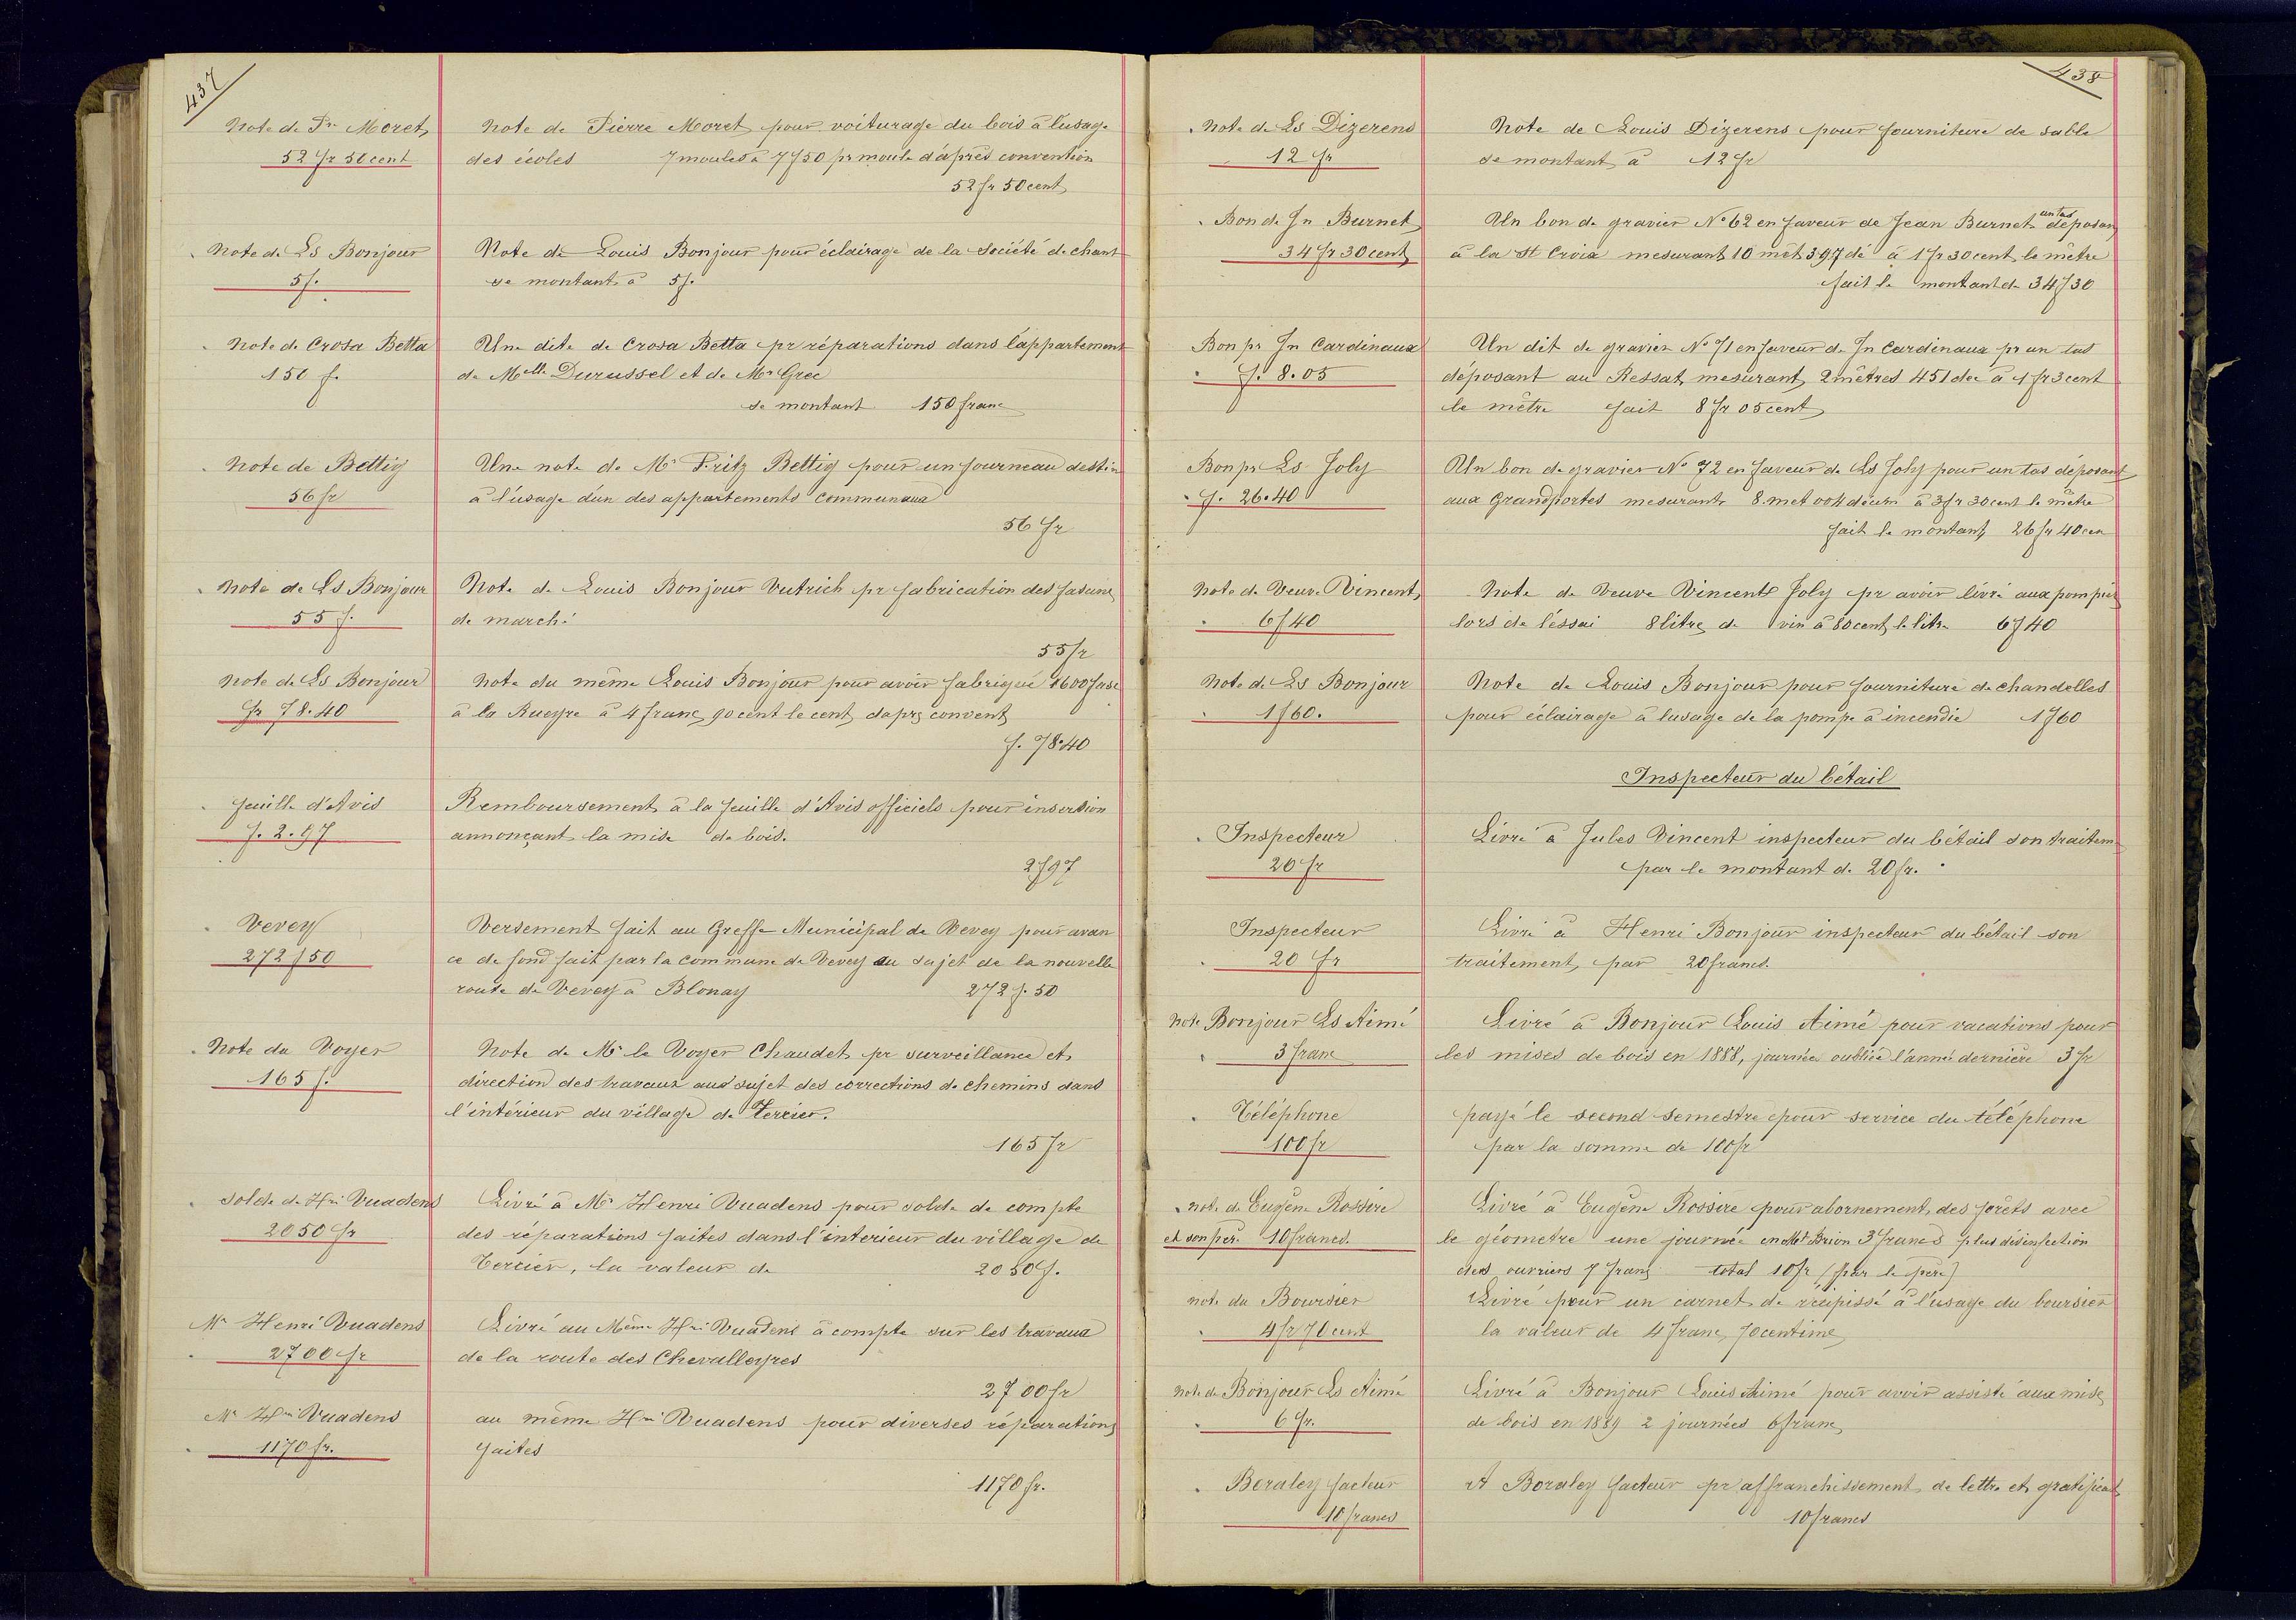 437
Note de Pre Moret
52 fr 50 cent
Note de Pierre Moret pour voiturage du bois à l'usage
des écoles 7 moules à 7f50 pr moule d'après convention
52 fr 50 cent
Note de Ls Bonjour
5 f.
Note de Louis Bonjour pour éclairage de la Société de chant
se montant à 5 f.
Note de Crosa Betta
150 f.
Une dite de Crosa Betta pr réparations dans l'appartement
de Melle Durussel et de Mr Grec
se montant 150 franc
Note de Bettig
56 fr
Une note de Mr Fritz Bettig pour un fourneau destin
à l'usage d'un des appartements communaux
56 fr
Note de Ls Bonjour
55 f.
Note de Louis Bonjour Vutrich pr fabrication des fascine
de marché
55 fr
Note de Ls Bonjour
fr 78.40
Note du même Louis Bonjour pour avoir fabriqué 1600 fasc
à la Rueyre à 4 franc 90 cent le cent daprs convent
f. 78.40
feuille d'Avis
f. 2.97
Remboursement à la feuille d'Avis officiels pour insertion
annonçant la mise de bois.
2f97
Vevey
272 f 50
Versement fait au Greffe Municipal de Vevey pour avan
ce de fond fait par la commune de Vevey au sujet de la nouvelle
route de Vevey à Blonay 272 f. 50
Note du Voyer
165 f.
Note de Mr le Voyer Chaudet pr surveillance et
direction des travaux aux sujet des corrections de chemins dans
l'intérieur du village de Tercier.
165 fr
Solde de Hri Vuadens
2050 fr
Livré à Mr Henri Vuadens pour solde de compte
des réparations faites dans l'interieur du village de
Tercier, la valeur de 2050 f.
Mr Henri Vuadens
2700 fr
Livré au Même Hri Vuadens à compte sur les travaux
de la route des Chevalleyres
2700 fr
Mr Hri Vuadens
1170 fr.
au même Hri Vuadens pour diverses réparations
faites
1170 fr.
438
Note de Ls Dizerens
12 fr
Note de Louis Dizerens pour fourniture de sable
se montant à 12 fr
Bon de Jn Burnet
34 fr 30 cent
Un bon de gravier No 62 en faveur de Jean Burnet un tas déposan
à la St Croix mesurant 10 mèt 397 dé à 1 fr 30 cent le mètre
fait le montant de 34f30
Bon pr Jn Cardinaux
f. 8.05
Un dit de gravier No 71 en faveur de Jn Cardinaux pr un tas
déposant au Ressat mesurant 2 mètres 451 déc à 1 fr 3 cent
le mètre fait 8 fr 05 cent
Bon pr Ls Joly
f. 26.40
Un bon de gravier No 72 en faveur de Ls Joly pour un tas déposant
aux Grandsportes mesurant 8 met 004 décim à 3 fr 30 cent le mètre
fait le montant 26 fr 40 cen
Note de Veuve Vincent
6f40
Note de Veuve Vincent Joly pr avoir livré aux pompier
lors de l'éssai 8 litres de vin à 80 cent le litre 6f40
Note de Ls Bonjour
1f60.
Note de Louis Bonjour pour fourniture de chandelles
pour éclairage à lusage de la pompe à incendie 1f60
Inspecteur du bétail
Inspecteur
20 fr
Livré à Jules Vincent inspecteur du bétail son traitem
par le montant de 20 fr.
Inspecteur
20 fr
Livré à Henri Bonjour inspecteur du bétail son
traitement, par 20 francs.
Note Bonjour Ls Aimé
3 franc
Livré à Bonjour Louis Aimé pour vacations pour
les mises de bois en 1888, journée oubliée l'anné dernière 3 fr
Téléphone
100 fr
payé le second semestre pour service du téléphone
par la somme de 100 fr
note de Eugène Rossire
et son père 10 francs.
Livré à Eugène Rossire pour abornement, des forêts avec
le géometre une journée 3 francs plus désinfection
des ouvriers 7 francs total 10 fr (par le père)
note du Boursier
4 fr 70 cent
Livré pour un carnet de récipissé à l'usage du boursier
la valeur de 4 franc 70 centime
Note de Bonjour Ls Aimé
6 fr.
Livré à Bonjour Louis Aimé pour avoir assisté aux mise
de bois en 1889 2 journées 6 franc
Boraley facteur
10 francs
A Boraley facteur pr affranchissement de lettre et gratificat
10 francs